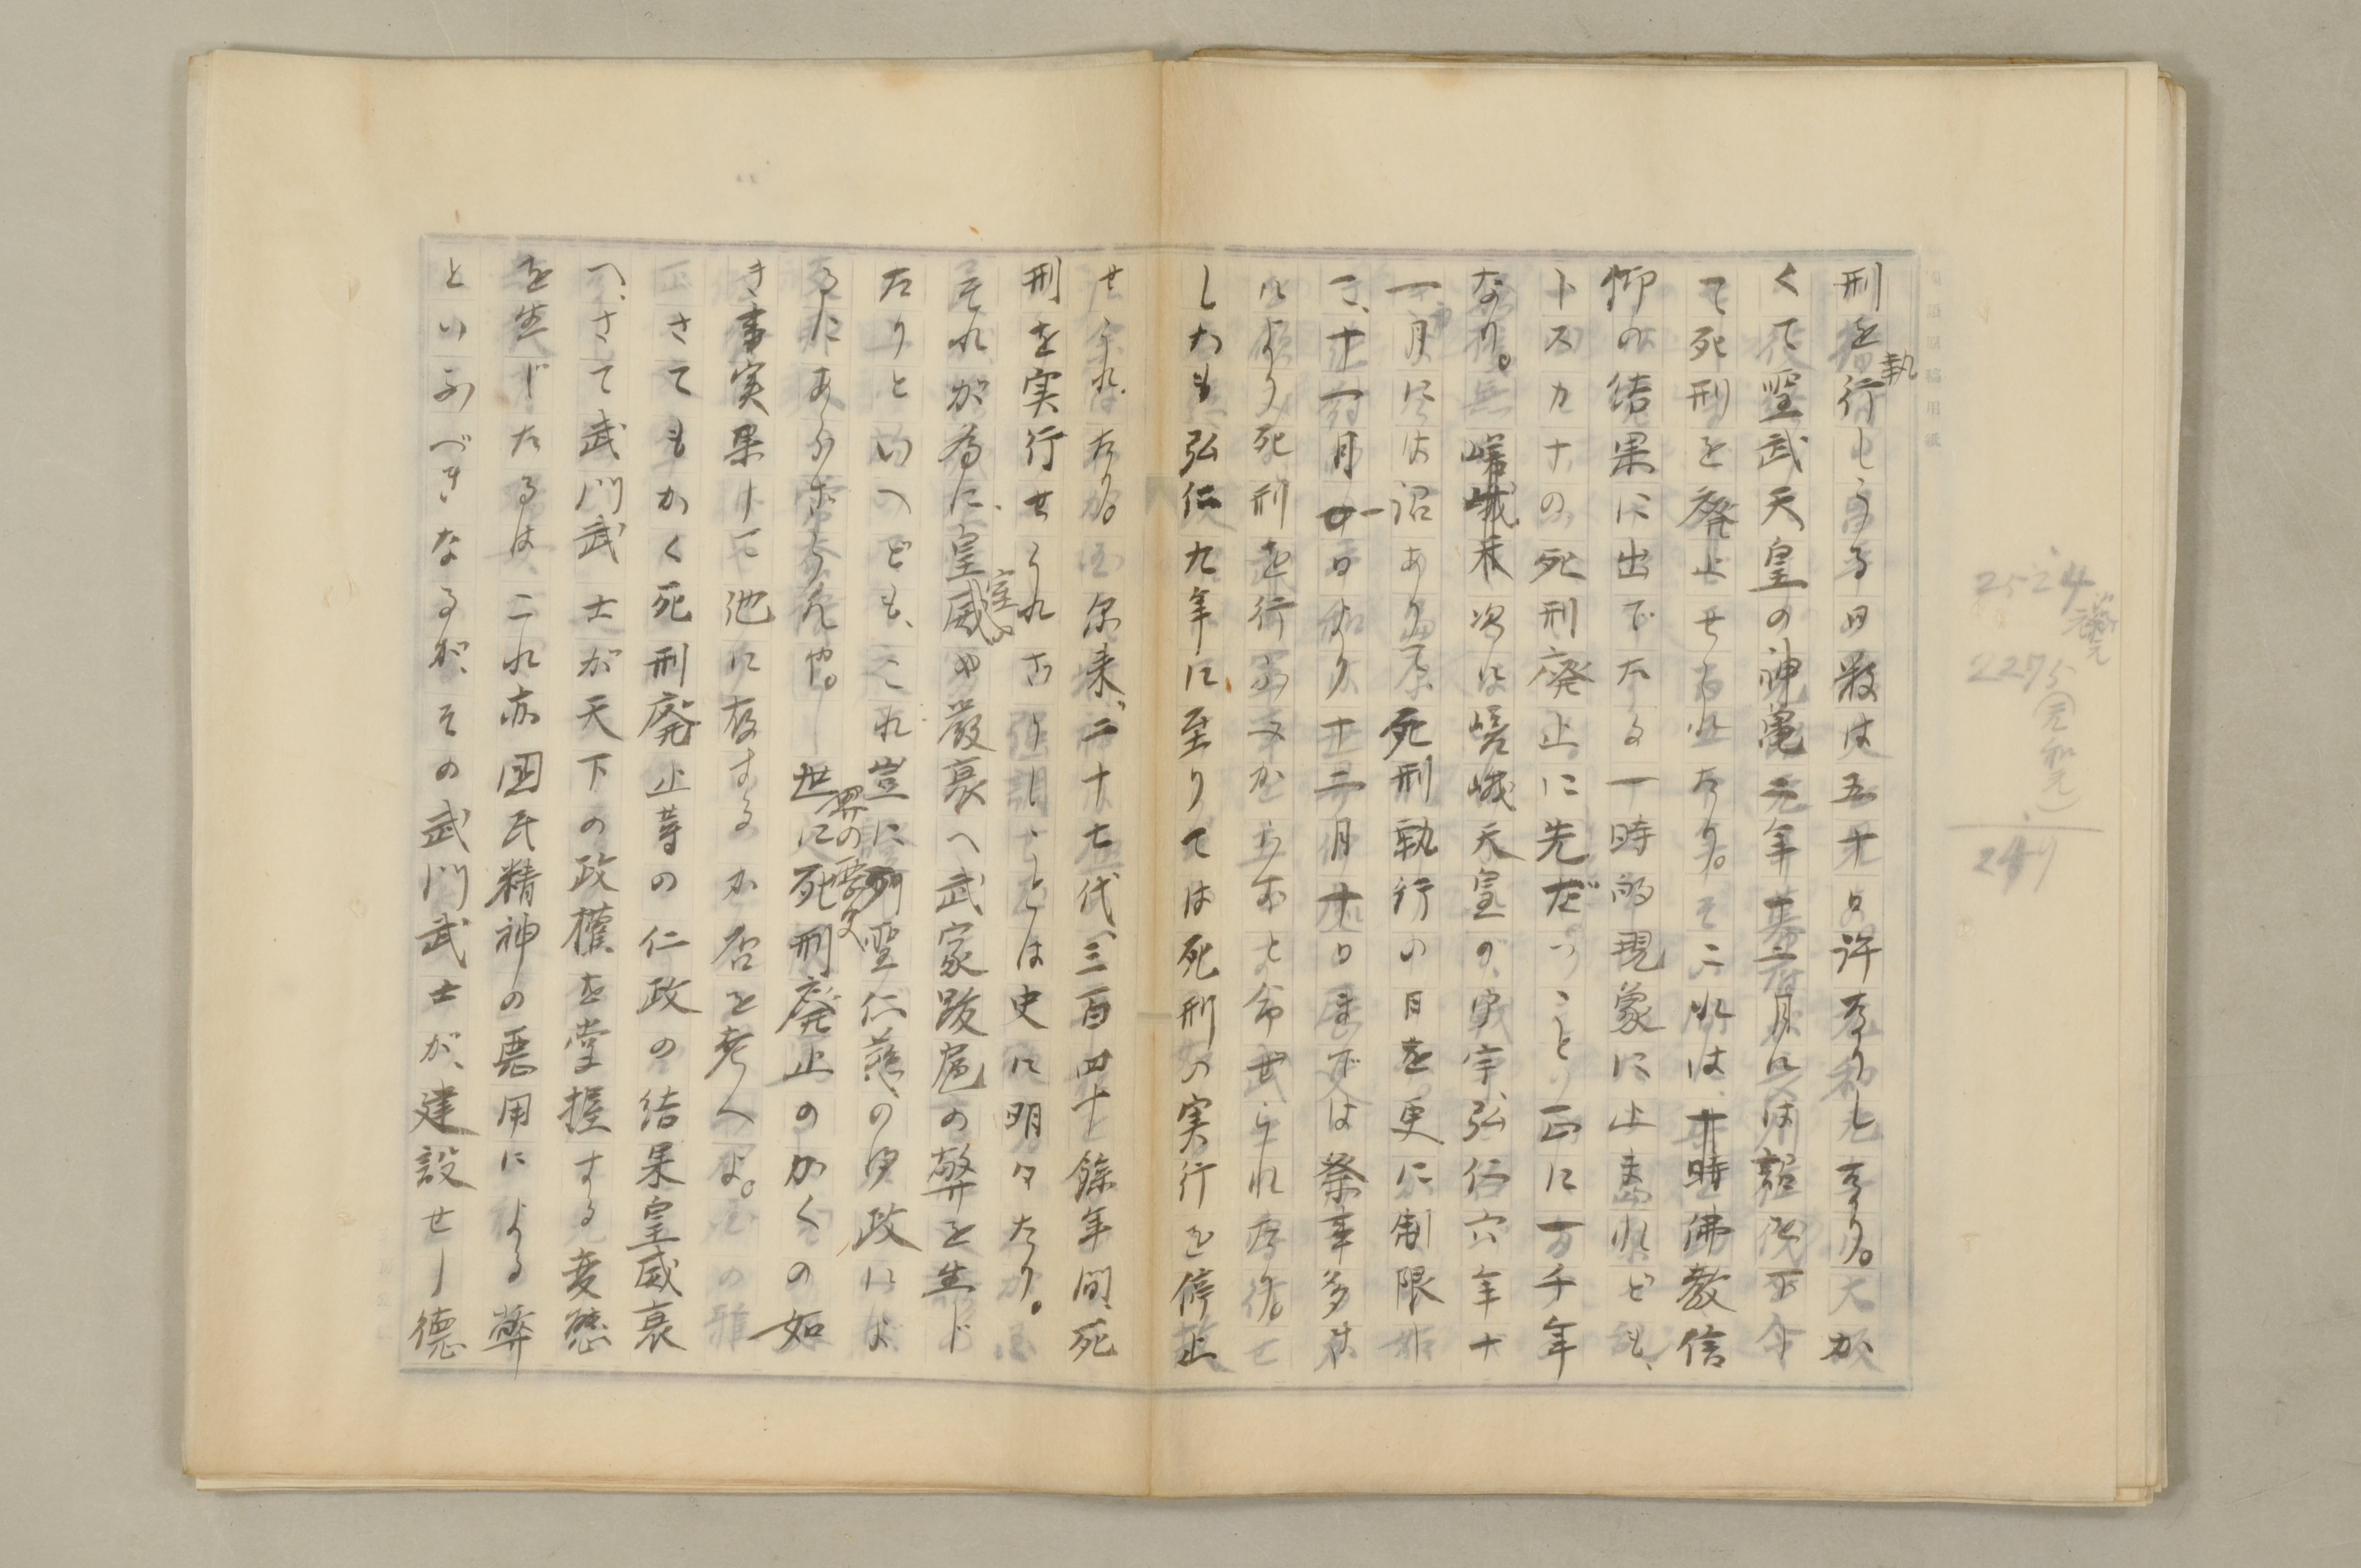 刑を執行しうる日数は五十日許なりしなり。か
くて聖武天皇の神亀元年十二月には詔を下し
て死刑を廃止せられたり。そこれは、時佛教信
仰の結果に出でたる一時的現象に止まれども、
トスカナの死刑廃止に先だつこと正に一千年
なり。次は嵯峨天皇の御宇、弘仁六年十
一月には詔あり死刑執行の日を更に制限
し、十一月廿一日より十二月十日までは祭事多き
により死刑を行ふべからずと命ぜられたり。
しかも弘仁九年に至りては死刑の実行を停止
せられたり。尓来、二十七代、三百四十餘年間、死
刑を実行せられざりしことは史に明々たり。
それが為に、皇室の威や嚴衰へ武家跋扈の弊を生じ
たりといへども、これ豈に列聖仁慈の御政によ
るにあらずや。世界の歴史に死刑廃止のかくの如
き事実果して他に存するか否を考へよ。
さてもかく死刑廃止等の仁政の結果皇威衰
へ、さて武門武士が天下の政權を掌握する変態
を生じたるは、これ亦国民精神の悪用による弊
といふべきなるが、その武門武士が、建設せし德
2524
元治元
2275(元和元)
249